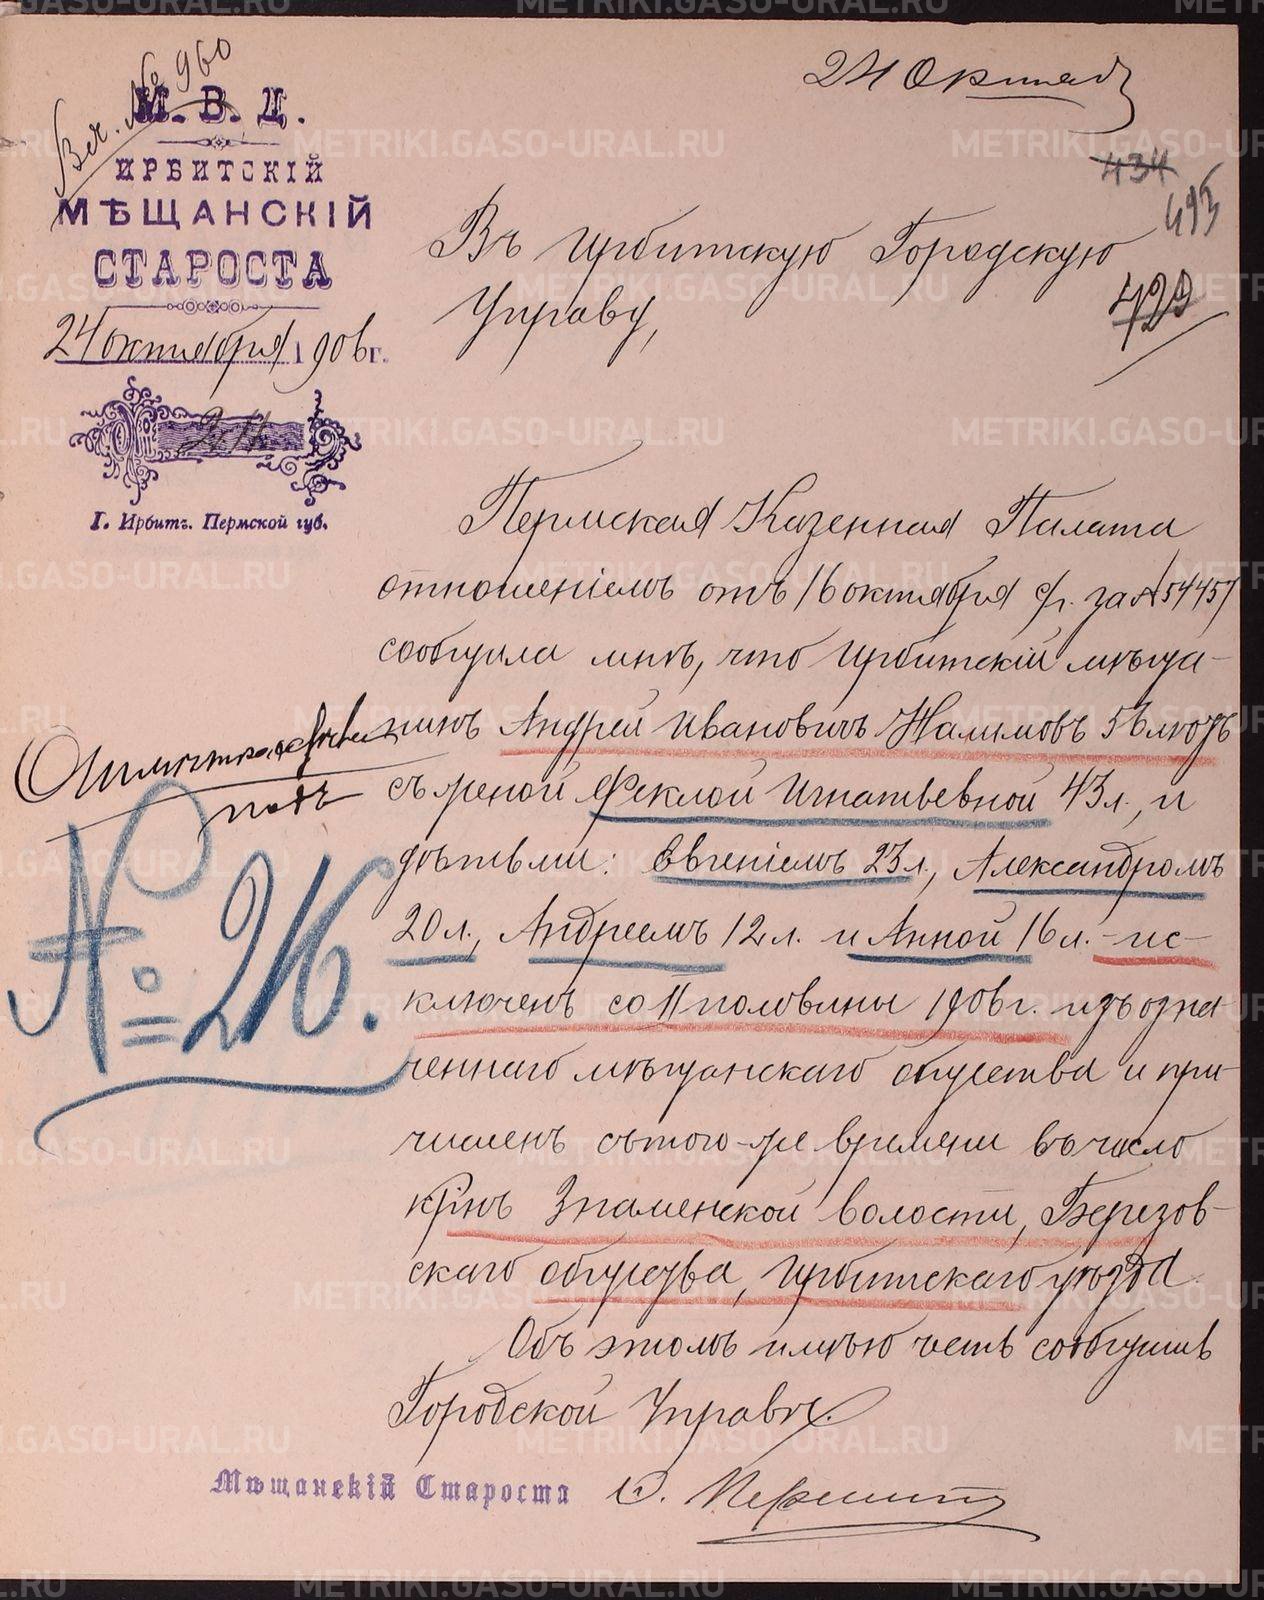 Вх. № 960
М. В. Д.
ИРБИТСКІЙ
МѢЩАНСКІЙ
СТАРОСТА
24 октября 1906 г.
№
Г. Ирбитъ. Пермской губ.
24 Октяб
434
493
429
Въ Ирбитскую Городскую
Управу,
Пермская Казенная Палата
отношеніемъ отъ 16 октября с/г. за № 54457
сообщила мнѣ, что Ирбитскій мѣща-
нинъ Андрей Ивановичъ Налимовъ 53 лѣтъ
съ женой Феклой Игнатьевной 43 л., и
дѣтьми: Евгеніемъ 23 л., Александромъ
20 л., Андреемъ 12 л. и Анной 16 л. - ис-
ключенъ со II половины 1906 г. изъ озна-
ченнаго мѣщанскаго общества и при-
численъ съ того-же времени въ число
кр-нъ Знаменской волости, Березов-
скаго общества, Ирбитскаго уѣзда.
Объ этомъ имѣю честь сообщить
Городской Управѣ.
Мѣщанскій Староста
№ 216.
METRIKI.GASO-URAL.RU